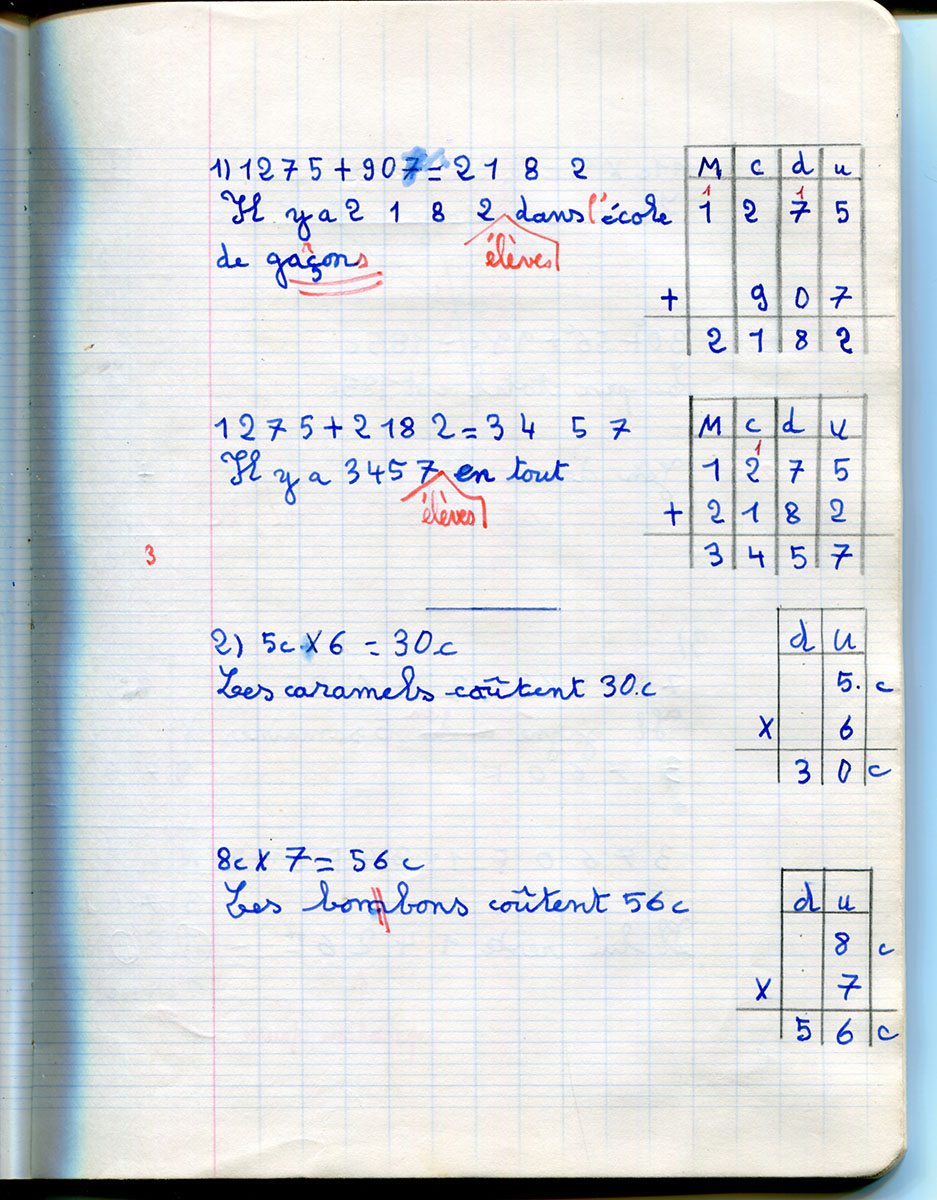 1) 1275 + 907 = 2182
Il y a 2182 dans l'école
élèves
de gaçons
r
M c d u
1 1
1 2 7 5
+ 9 0 7
2 1 8 2
1275 + 2182 = 3457
Il y a 3457 en tout
élèves
M c d u
1
1 2 7 5
+ 2 1 8 2
3 4 5 7
3
2) 5c X 6 = 30c
Les caramels coûtent 30.c
d u
5. c
X 6
3 0 c
8c X 7 = 56c
Les bonbons coûtent 56c
d u
8 c
X 7
5 6 c